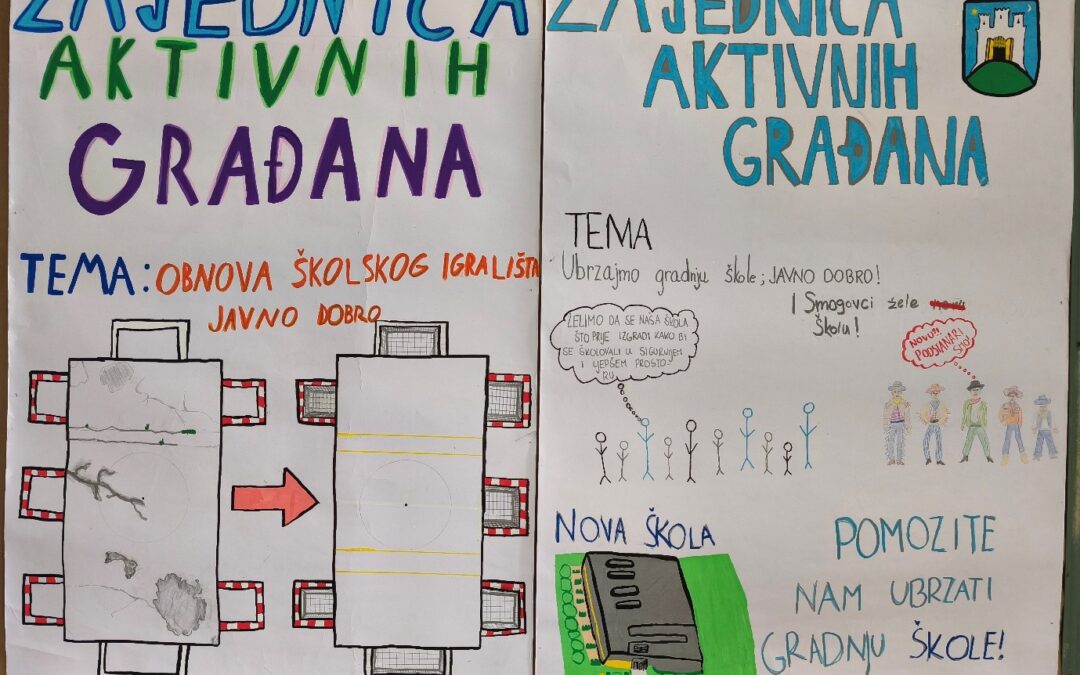 ZAJEDNICA
AKTIVNIH
GRAĐANA
TEMA: OBNOVA ŠKOLSKOG IGRALIŠTA
JAVNO DOBRO
ZAJEDNICA
AKTIVNIH
GRAĐANA
TEMA
Ubrzajmo gradnju škole; JAVNO DOBRO!
I Smogovci žele
Školu!
ŽELIMO DA SE NAŠA ŠKOLA
ŠTO PRIJE IZGRADI KAKO BI
SE ŠKOLOVALI U SIGURNIJEM
I LJEPŠEM PROSTO-
RU.
NOVU!!!
PODSTANARI
SMO!
NOVA ŠKOLA
POMOZITE
NAM UBRZATI
GRADNJU ŠKOLE!